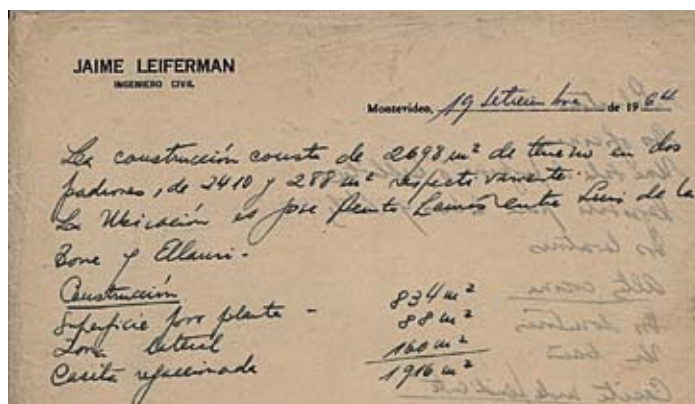 JAIME LEIFERMAN
INGENIERO CIVIL
Montevideo, 19 Setiembre de 1964
La construcción consta de 2698 m² de terreno en dos
padrones, de 2410 y 288 m² respectivamente.
La Ubicación es Jose Benito Lamas entre Luis de la
Torre y Ellauri.-
Construcción
Superficie por planta - 834 m²
Zona lateral 88 m²
Casita refaccionada 160 m²
1916 m²